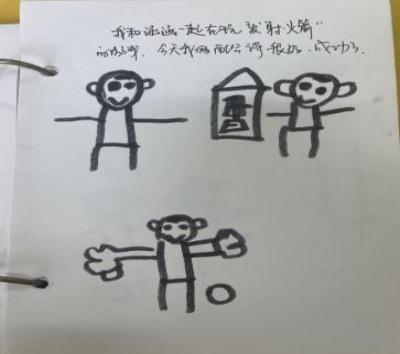 我和涵涵一起在玩"发射火箭"
的游戏,今天我俩配合得很好,成功了.